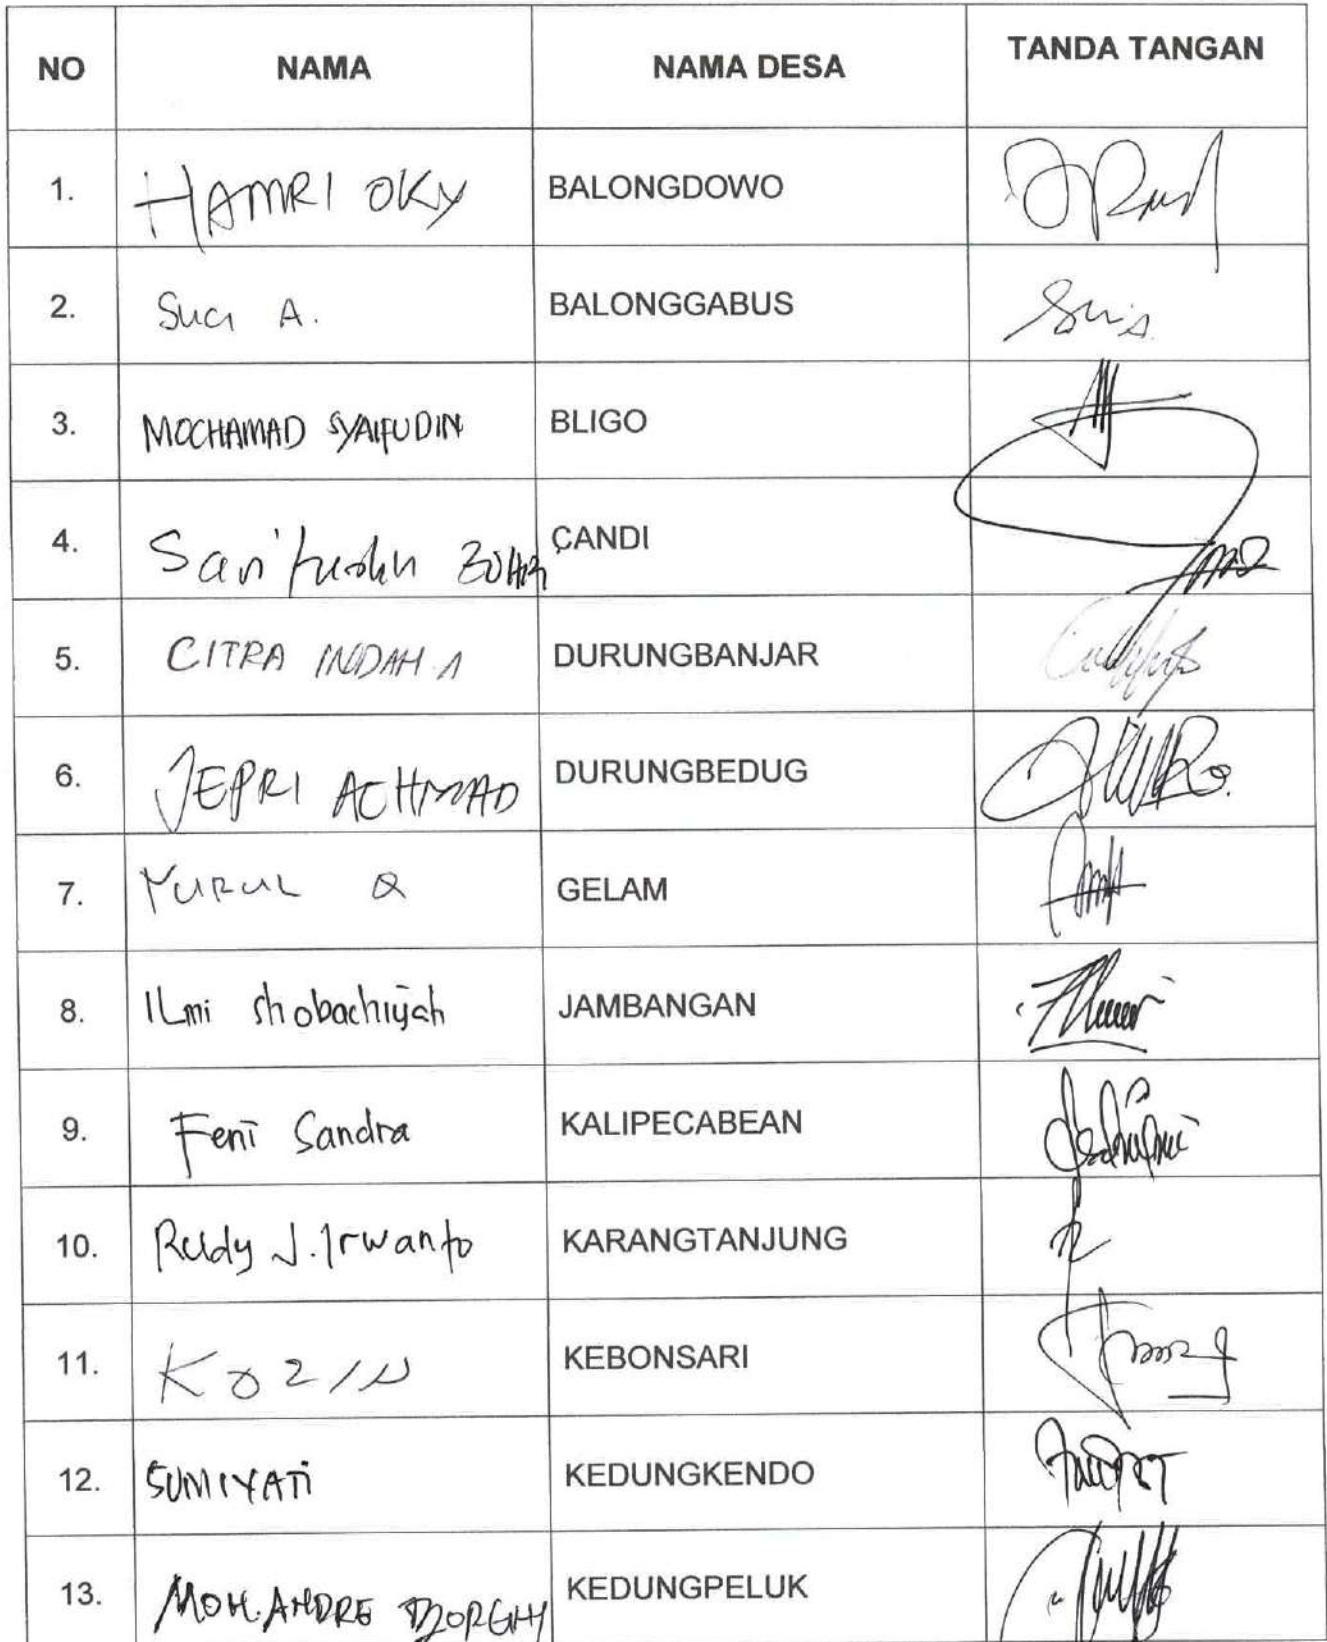 NO NAMA NAMA DESA TANDA TANGAN
1. HAMRI OKY BALONGDOWO
2. Suci A. BALONGGABUS
3. MOCHAMAD SYAIFUDIN BLIGO
4. CANDI
5. CITRA INDAH A DURUNGBANJAR
6. JEPRI ACHMAD DURUNGBEDUG
7. NURUL Q GELAM
8. ILmi shobachiyah JAMBANGAN
9. Feni Sandra KALIPECABEAN
10. Rudy J. Irwanto KARANGTANJUNG
11. KOZIN KEBONSARI
12. SUMIYATi KEDUNGKENDO
13. MOH. ANDRE KEDUNGPELUK